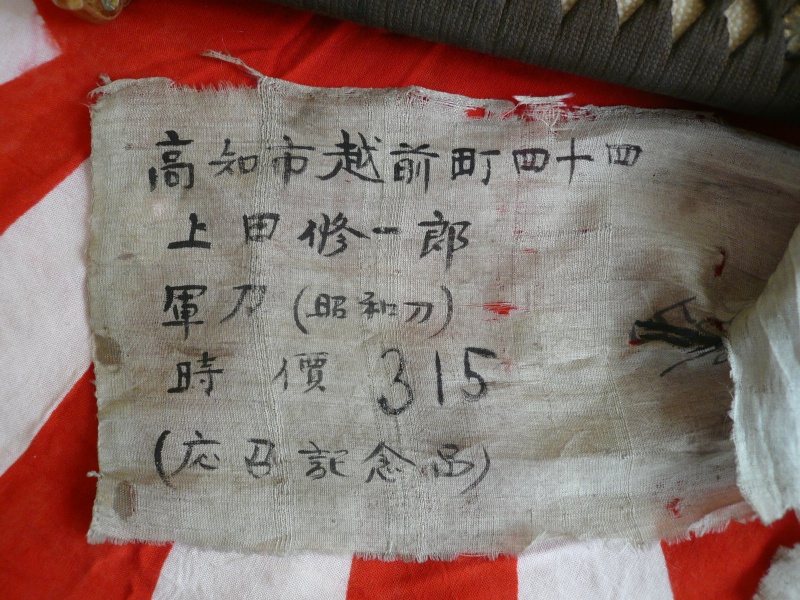 高知市越前町四十四
上田修一郎
軍刀(昭和刀)
時價 315
(応召記念品)